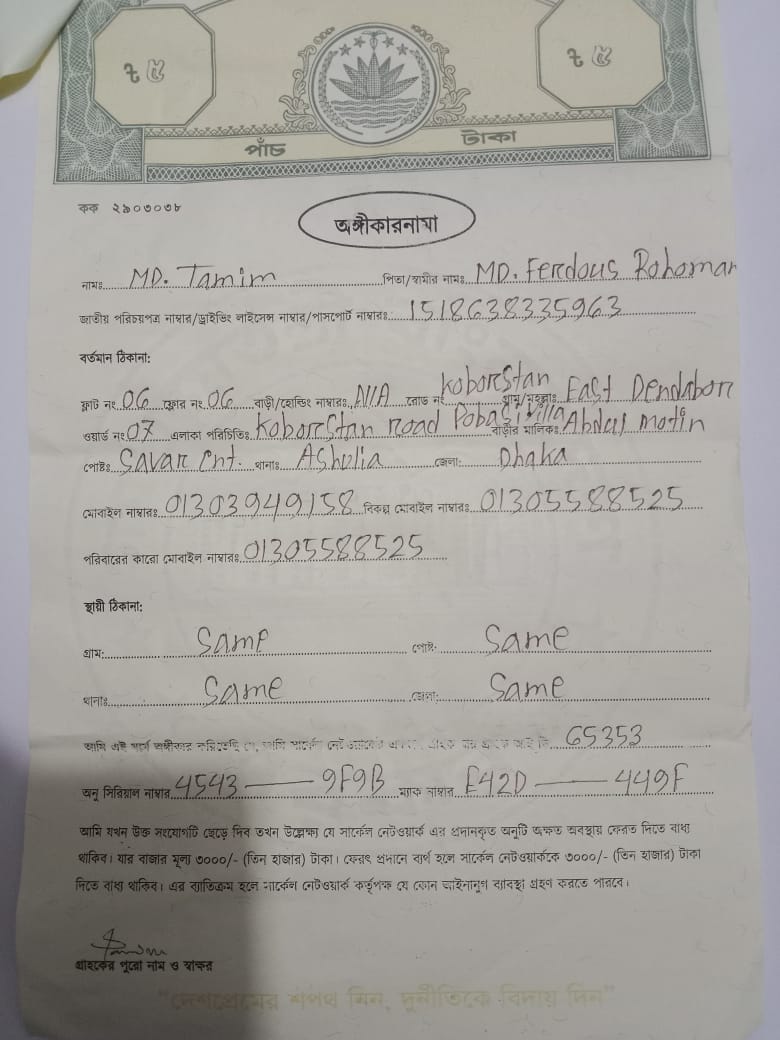 ৳ ৫ ৳ ৫
পাঁচ টাকা
কক ২৯০৩০৩৮
অঙ্গীকারনামা
নামঃ MD. Tamim পিতা/স্বামীর নামঃ MD. Ferdous Rohoman
জাতীয় পরিচয়পত্র নাম্বার/ড্রাইভিং লাইসেন্স নাম্বার/পাসপোর্ট নাম্বারঃ 1518638335963
বর্তমান ঠিকানা:
ফ্লাট নং 06 ফ্লোর নং 06 বাড়ী/হোল্ডিং নাম্বারঃ N/A রোড নং Koborestan গ্রাম/মহল্লাঃ East Dendabor
ওয়ার্ড নং 07 এলাকা পরিচিতিঃ Koborestan road Pobasi Villa বাড়ীর মালিকঃ Abdul Motin
পোষ্টঃ Savar Cnt. থানাঃ Ashulia জেলা: Dhaka
মোবাইল নাম্বারঃ 01303949158 বিকল্প মোবাইল নাম্বারঃ 01305588525
পরিবারের কারো মোবাইল নাম্বারঃ 01305588525
স্থায়ী ঠিকানা:
গ্রাম: Same পোষ্ট: Same
থানাঃ Same জেলা: Same
আমি এই মর্মে অঙ্গীকার করিতেছি যে, আমি সার্কেল নেটওয়ার্কের একজন গ্রাহক যার গ্রাহক আই ডি 65353
অনু সিরিয়াল নাম্বার 4543 — 9F9B ম্যাক নাম্বার E42D — 449F
আমি যখন উক্ত সংযোগটি ছেড়ে দিব তখন উল্লেক্ষ্য যে সার্কেল নেটওয়ার্ক এর প্রদানকৃত অনুটি অক্ষত অবস্থায় ফেরত দিতে বাধ্য
থাকিব। যার বাজার মূল্য ৩০০০/- (তিন হাজার) টাকা। ফেরৎ প্রদানে ব্যর্থ হলে সার্কেল নেটওয়ার্ককে ৩০০০/- (তিন হাজার) টাকা
দিতে বাধ্য থাকিব। এর ব্যতিক্রম হলে সার্কেল নেটওয়ার্ক কর্তৃপক্ষ যে কোন আইনানুগ ব্যবস্থা গ্রহণ করতে পারবে।
গ্রাহকের পুরো নাম ও স্বাক্ষর
"দেশপ্রেমের শপথ নিন, দুর্নীতিকে বিদায় দিন"